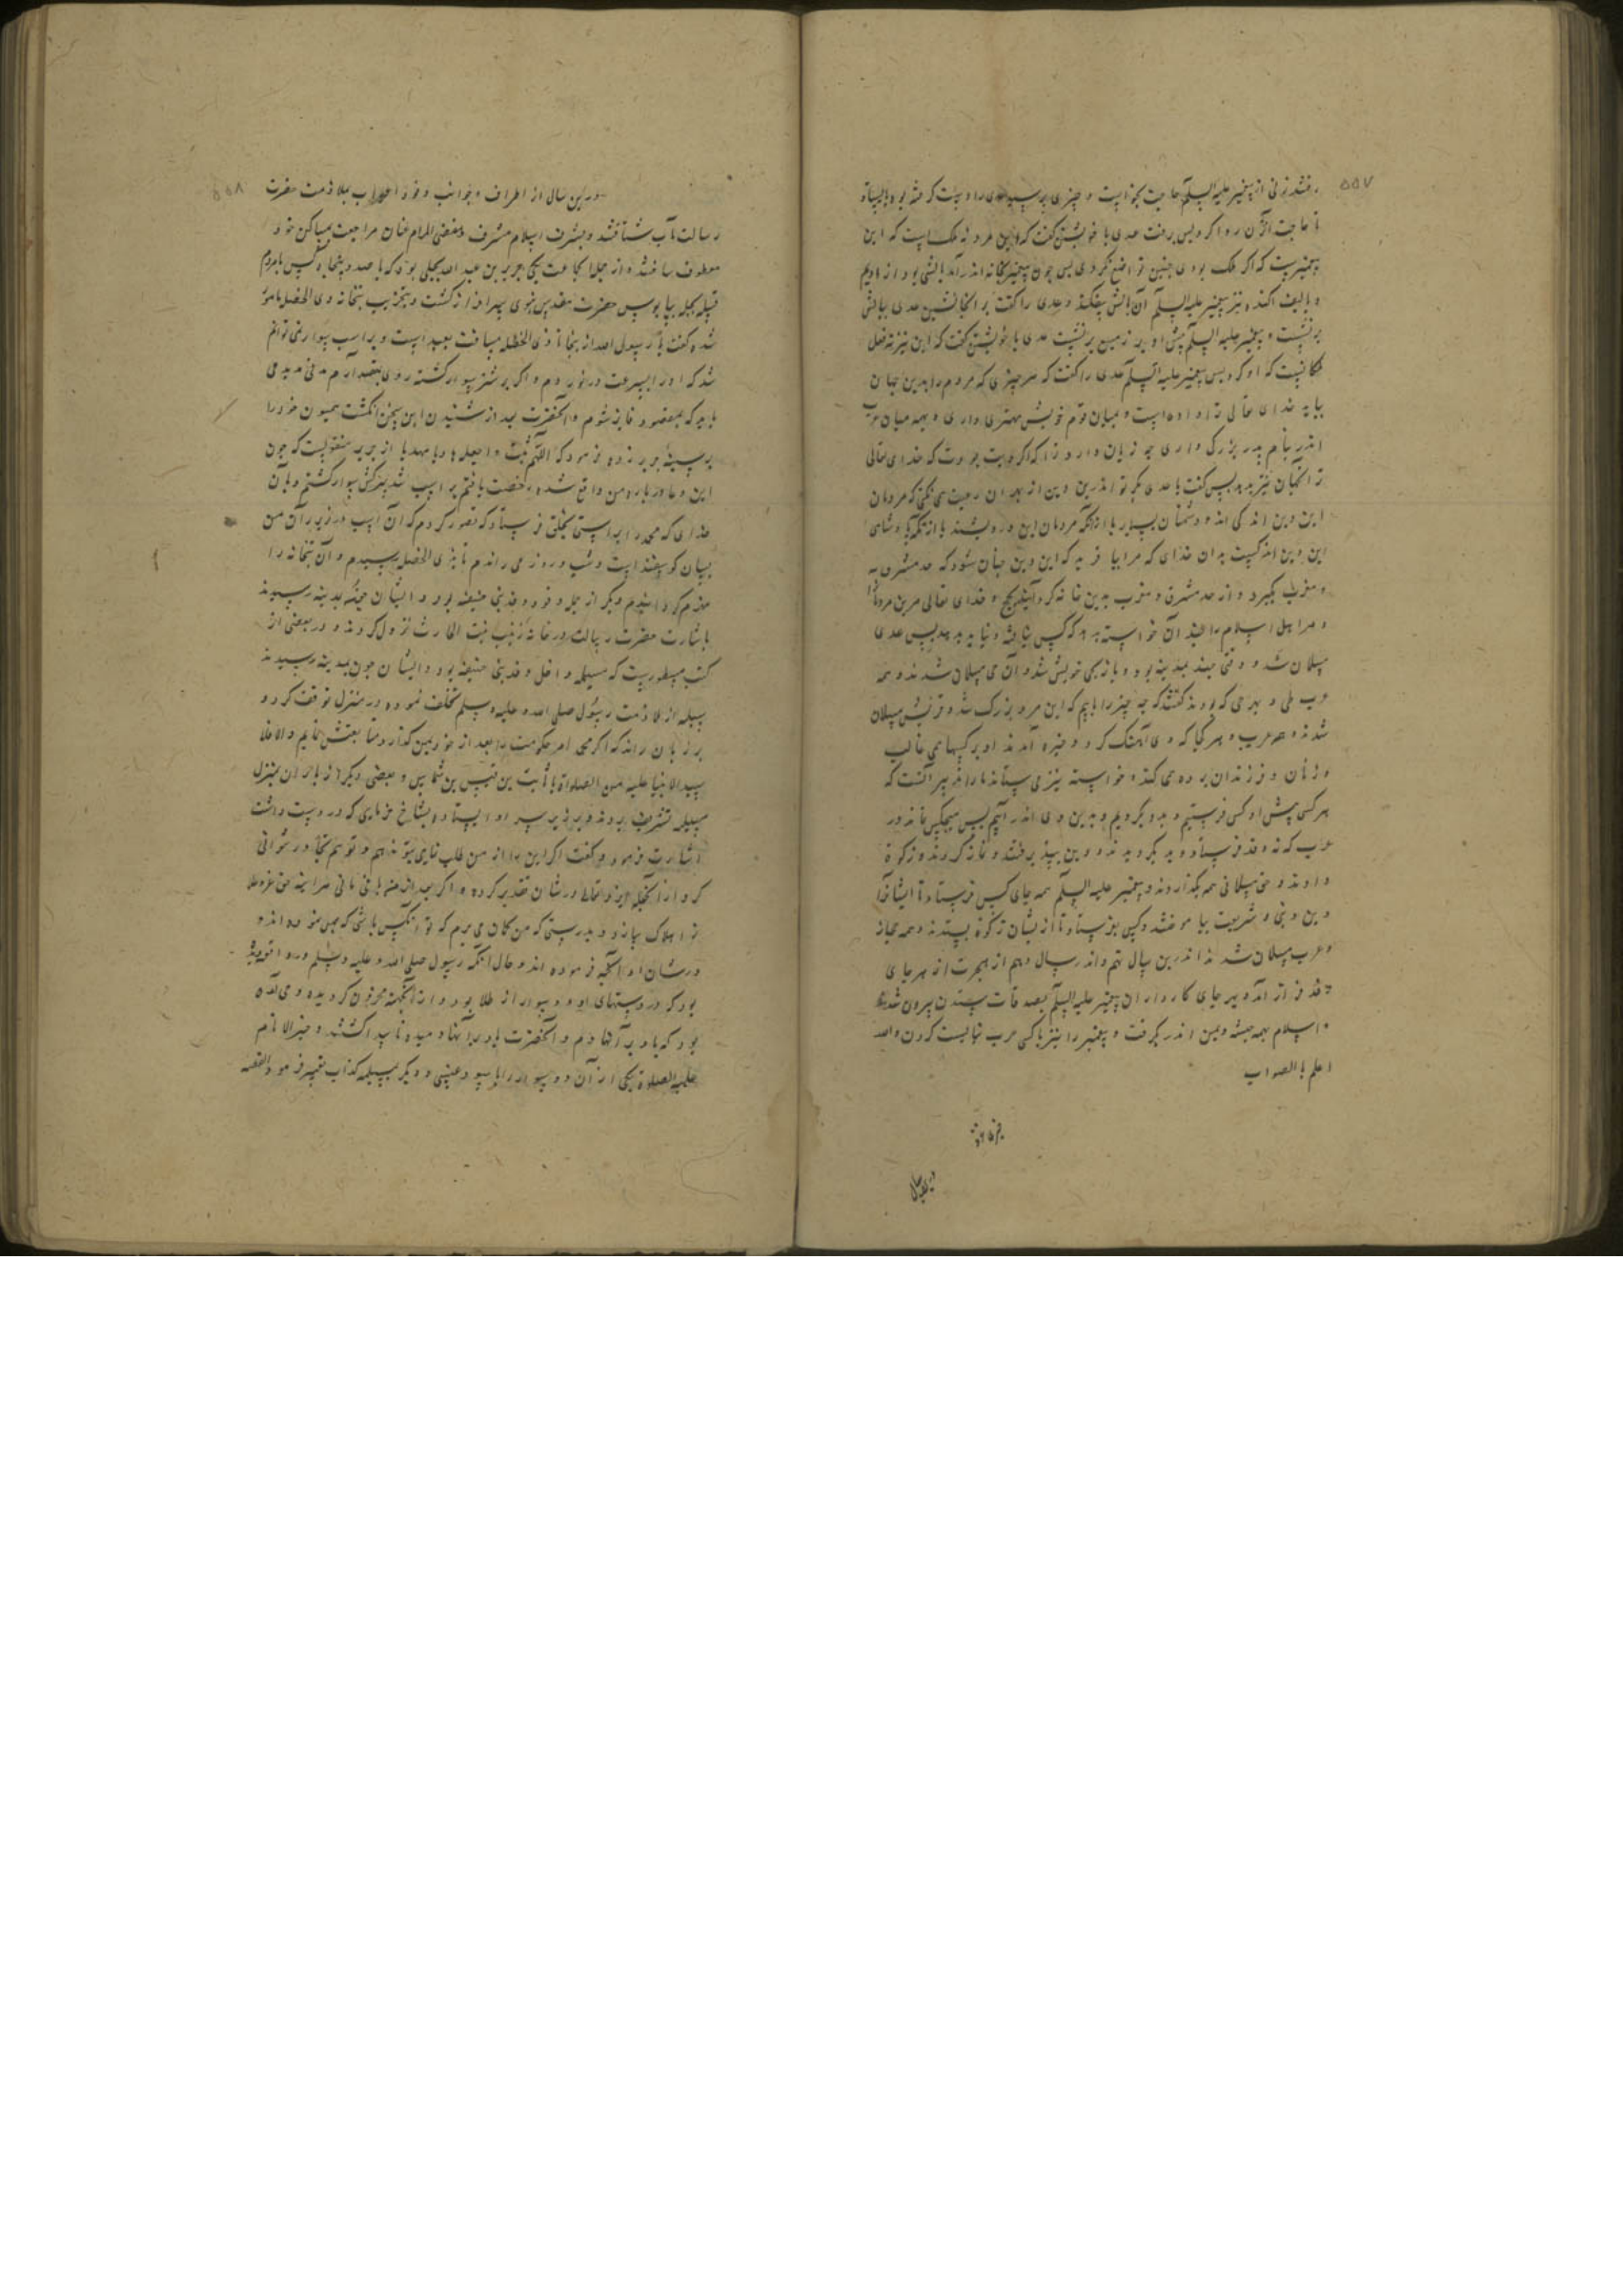 ۵۵۷
رفتند زنی از پیغمبر علیه السلم حاجت بخواست و چیزی پرسید عدی را دست گرفته بود بایستاد
تا حاجت آن زن روا کرد پس برفت عدی با خویشتن گفت که این مرد نه ملک است که این
پیغمبریست که اگر ملک بودی چنین تواضع نکردی پس چون پیغمبر بخانه اندر آمد بالشی بود از ادیم
و بالیف آکنده نیز پیغمبر علیه السلم آن بالش بیفکند و عدی را گفت بر اینجا نشین عدی ببالش
برنشست و پیغمبر علیه السلم پیش او بر زمین بنشست عدی با خویشتن گفت که این نیز نه فعل
ملکانست که او کرد پس پیغمبر علیه السلم عدی را گفت که هر چیزی که مردم را بدین جهان
بباید خدای تعالی ترا داده است و میان قوم خویش مهتری داری و بهمه میان عرب
اندر بنام پدر بزرگ داری چه زیان دارد ترا که اگر دست بود که خدای تعالی
ترا آنجهان نیز بدهد پس گفت یا عدی مگر تو اندرین دین از بهر آن رغبت نمی کنی که مردمان
این دین اندکی اند و دشمنان بسیار یا از آنکه مردمان این درویشند یا از آنکه پادشاهی
این دین اندکیست بدان خدای که مرا بیافرید که این دین چنان شود که حد مشرق
و مغرب بگیرد و از حد مشرق و مغرب بدین خانه کرد آیند بحج و خدای تعالی مرین مردمانرا
و مر اهل اسلام را چندان خواسته بدهد که کس نیافته و نیابد پس عدی
مسلمان شد و وقتی چند بمدینه بود و باز بجی خویش شد و آن می مسلمان شدند و همه
عرب طی و بهر حی که بودند گفتند که چه چیز را باییم که این مرد بزرگ شد و قریش مسلمان
شدند و همه عرب و هر کجا که وی آهنگ کرد و خیره آمدند او بر کسها می غالب
و زنان و فرزندان برده می کند و خواسته نیز می ستاند ما را تدبیر آنست که
هر کسی پیش او کس فرستیم و بدو بگرویم و بدین وی اندر آییم پس هیچکس نماند در
عرب که نه وفد فرستاد و بدو بگرویدند و دین بپذیرفتند و نماز کردند و زکوة
دادند و حق مسلمانی همه بگذاردند و پیغمبر علیه السلم همه جای کس فرستاد تا ایشانرا
دین و نبی و شریعت بیاموختند و کس بفرستاد تا از ایشان زکوة بستدند و همه حجاز
و عرب مسلمان شدند اندرین سال نهم و اندر سال دهم از هجرت از هر جای
وفد فراز آمد و بهر جای کارداران پیغمبر علیه السلم بصدقات ستدن بیرون شدند
و اسلام بهمه جهان اندر بگرفت و پیغمبر را نیز با کسی حرب نبایست کردن والله
اعلم بالصواب
در این سال
۵۵۸
در این سال از اطراف و جوانب وفود اعراب بملازمت حضرت
رسالت مآب شتافتند و بشرف اسلام مشرف و مقضی المرام عنان مراجعت بمساکن خود
معطوف ساختند و از جمله آن جماعت یکی جریر بن عبد الله بجلی بود که با صد و پنجاه کس با مردم
قبیله بجیله بپابوس حضرت مقدس نبوی سرافراز گشت و بتخریب بتخانه ذی الخلصه مامور
شده گفت یا رسول الله از اینجا تا ذی الخلصه مسافت بعید است و بر اسب سواری نمی توانم
شد که او را بسرعت در نوردم و اگر بر شتر سوار گشته روی بمقصد آرم مدتی مدید می
باید که بمقصود فایز شوم و آنحضرت بعد از شنیدن این سخن انگشت همیون خود را
بر سینه جریر زده فرمود که اللهم ثبته و اجعله هادیا مهدیا از جریر منقولست که چون
این دعا در باره من واقع شده رخصت یافتم بر اسب تند سرکش سوار گشتم و بآن
خدای که محمد را براستی بخلق فرستاد که تصور کردم که آن اسب در زیر ران من
بسان گوسفند است و شب و روز می راندم تا بذی الخلصه رسیدم و آن بتخانه را
منهدم گردانیدم و دیگر از جمله وفود وفد بنی حنیفه بود و ایشان چون بمدینه رسیدند
باشارت حضرت رسالت در خانه زینب بنت الحارث نزول کردند و در بعضی از
کتب مسطوریست که مسیلمه داخل وفد بنی حنیفه بود و ایشان چون بمدینه رسیدند
مسیلمه از ملازمت رسول صلی الله علیه وسلم تخلف نموده در منزل توقف کرد و
بر زبان راند که اگر محمد امر حکومت را بعد از خود بمن گذارد متابعتش نمایم و الا فلا
سید الانبیا علیه من الصلوات با ثابت بن قیس بن شماس و بعضی دیگر از یاران بمنزل
مسیلمه تشریف بردند و بر زیر سر او ایستاده بشاخ خرمایی که در دست داشت
اشارت فرمود و گفت اگر این را از من طلب نمایی بتو ندهم و تو هم تجاوز نتوانی
کرد از آنچه ایزد تعالی در شان تو تقدیر کرده و اگر بعد از من باقی مانی هر آینه حق عز و علا
ترا هلاک سازد و بدرستی که من گمان می برم که تو آنکس باشی که بمن نموده اند و
در شان او آنچه فرموده اند و حال آنکه رسول صلی الله علیه وسلم در واقعه دیده
بود که در دستهای او دو سوار از طلا بود و از آنجهت محزون گردیده وحی آمده
بود که باد بر آنها دم و آنحضرت باد بر آنها دمیده ناپیدا گشتند و خیر الانام
علیه الصلوة یکی از آن دو سوار را باسود عنسی و دیگری بمسیلمه کذاب تعبیر فرمود القصه